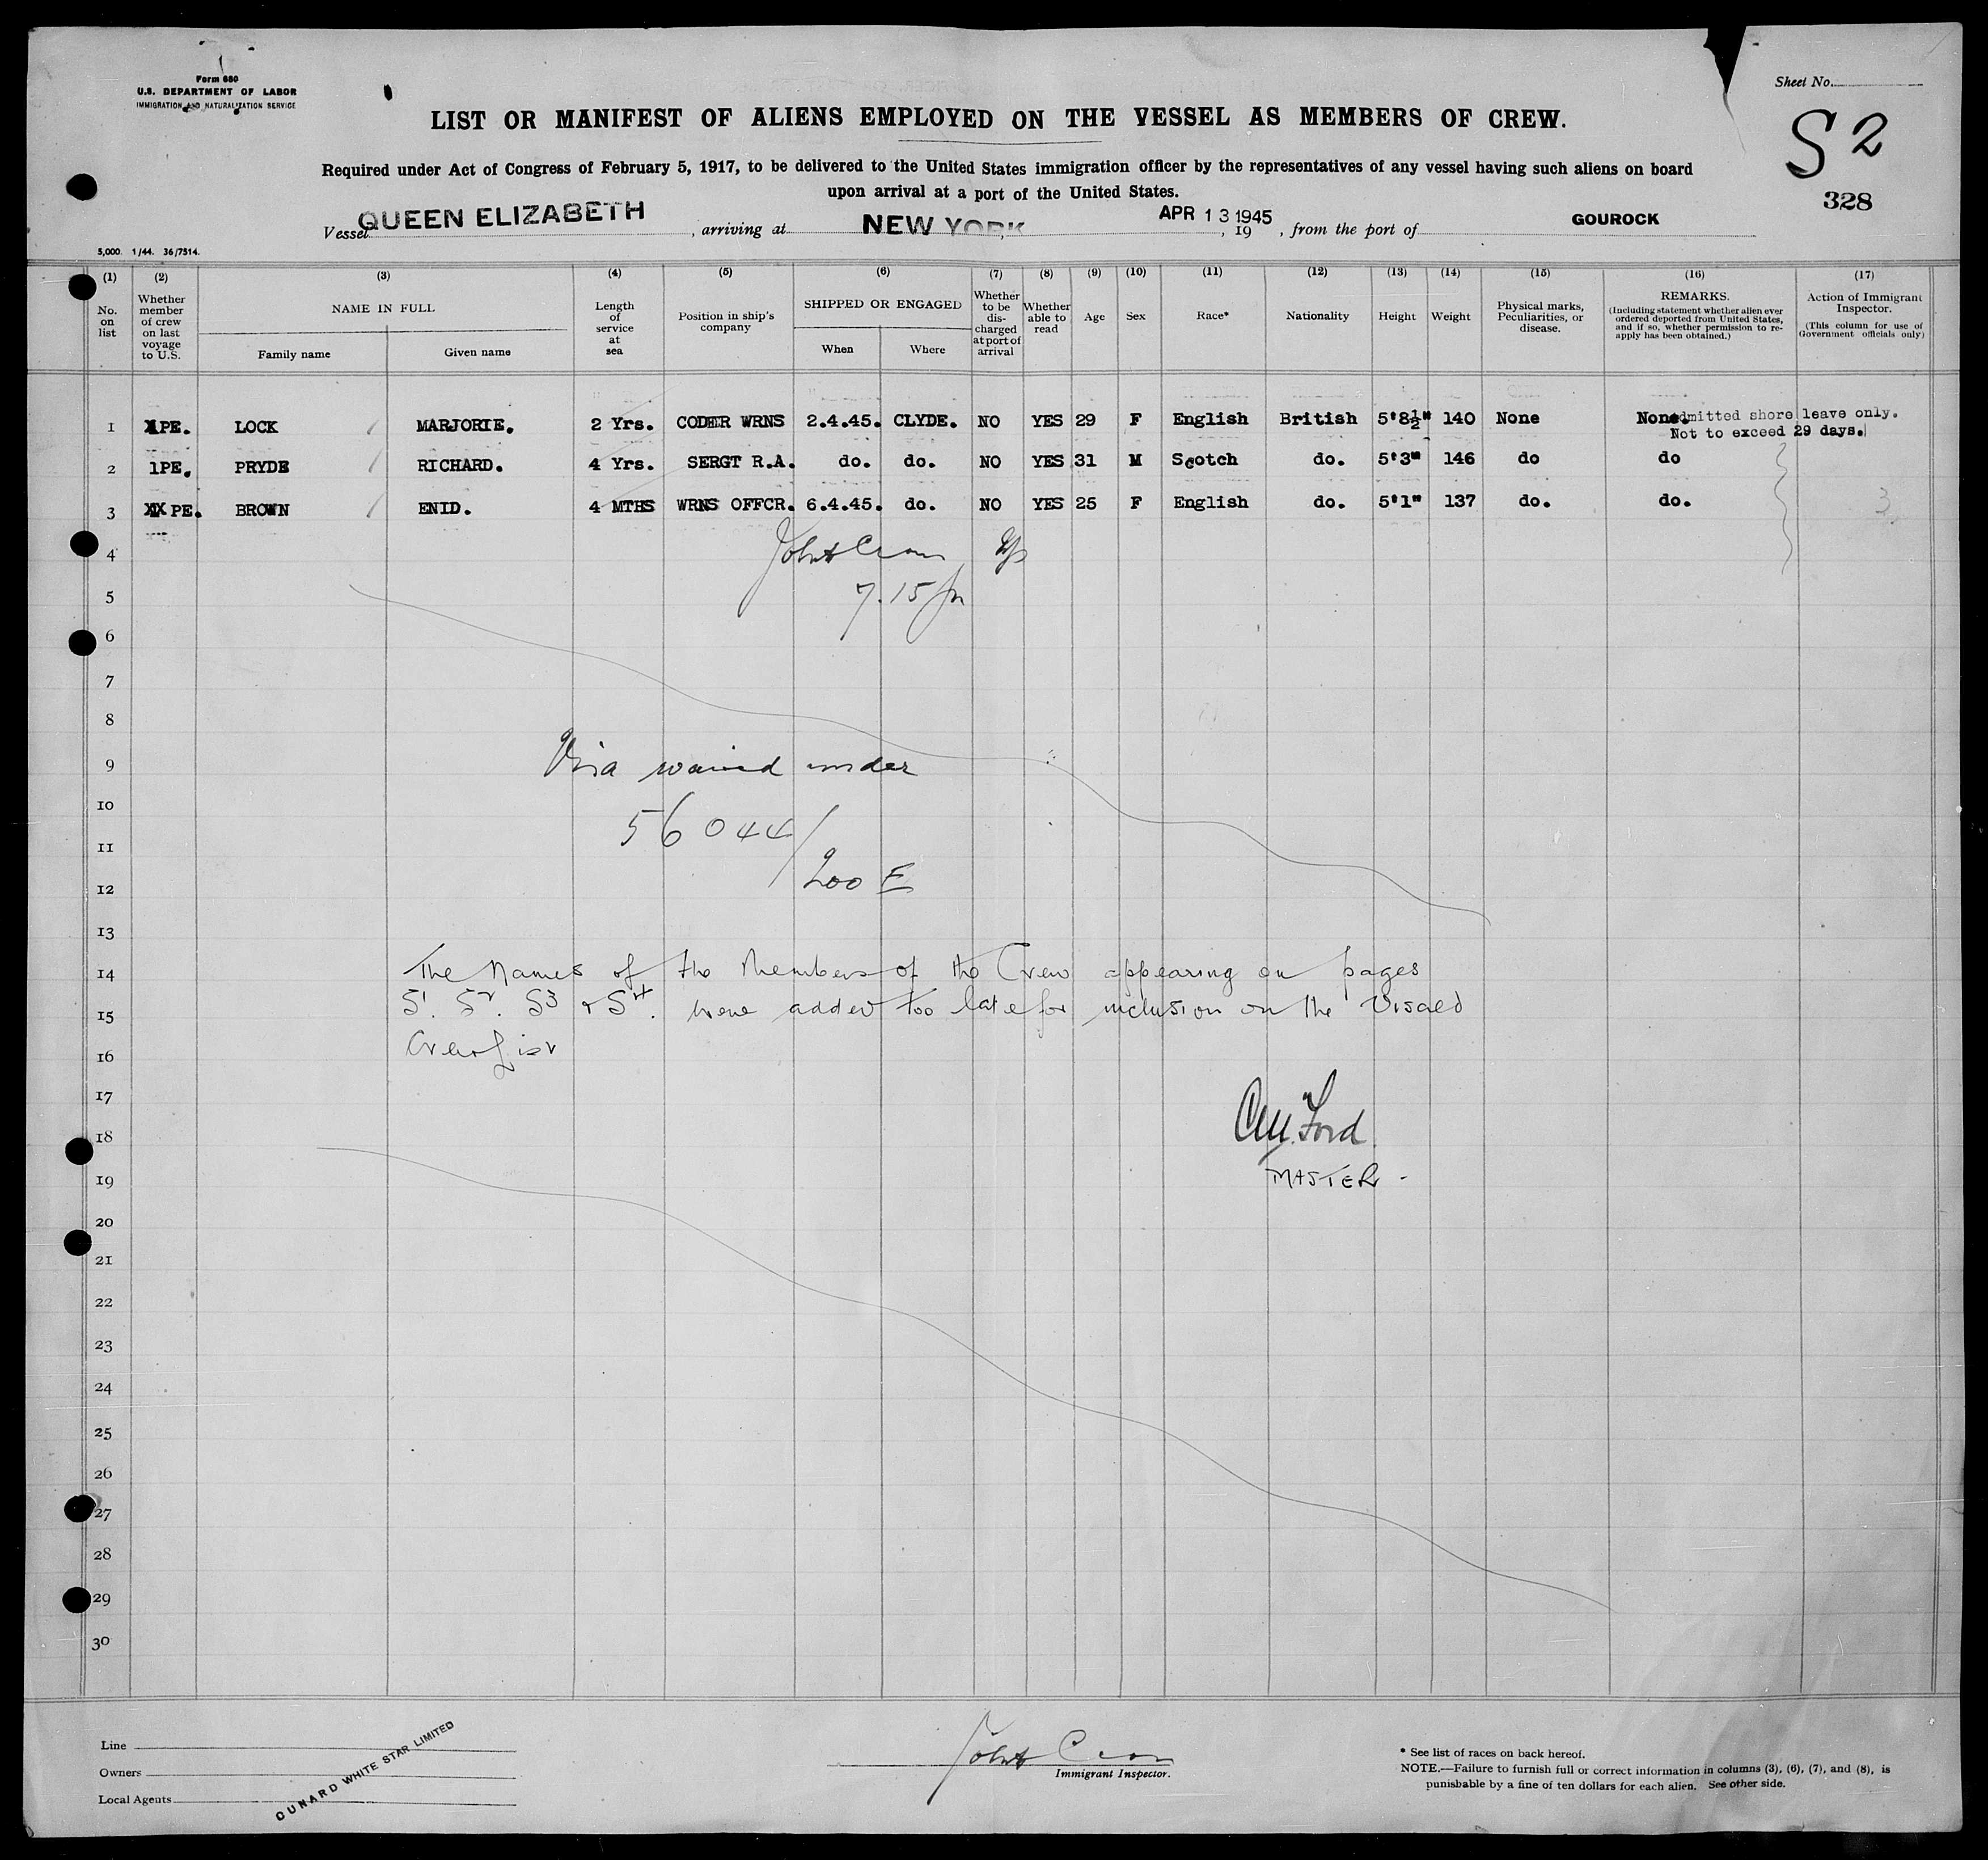 Form 680
U.S. DEPARTMENT OF LABOR
IMMIGRATION AND NATURALIZATION SERVICE
Sheet No.
LIST OR MANIFEST OF ALIENS EMPLOYED ON THE VESSEL AS MEMBERS OF CREW.
S 2
Required under Act of Congress of February 5, 1917, to be delivered to the United States immigration officer by the representatives of any vessel having such aliens on board
upon arrival at a port of the United States.
328
Vessel QUEEN ELIZABETH, arriving at NEW YORK, APR 13 1945, 19 , from the port of GOUROCK
5,000. 1/44. 36/7514.
(1) (2) (3) (4) (5) (6) (7) (8) (9) (10) (11) (12) (13) (14) (15) (16) (17)
No. on list
Whether member of crew on last voyage to U.S.
NAME IN FULL
Family name
Given name
Length of service at sea
Position in ship's company
SHIPPED OR ENGAGED
When
Where
Whether to be discharged at port of arrival
Whether able to read
Age
Sex
Race*
Nationality
Height
Weight
Physical marks, Peculiarities, or disease.
REMARKS.
(Including statement whether alien ever ordered deported from United States, and if so, whether permission to re-apply has been obtained.)
Action of Immigrant Inspector.
(This column for use of Government officials only)
1 PE. LOCK MARJORIE. 2 Yrs. CODER WRNS 2.4.45. CLYDE. NO YES 29 F English British 5'8½" 140 None None. Admitted shore leave only.
Not to exceed 29 days.
2 1PE. PRYDE RICHARD. 4 Yrs. SERGT R.A. do. do. NO YES 31 M Scotch do. 5'3" 146 do do
3 XX PE. BROWN ENID. 4 MTHS WRNS OFFCR. 6.4.45. do. NO YES 25 F English do. 5'1" 137 do. do. 3
4
5 7.15 pm
6
7
8
9 Visa waived under
10
56044/
11
200 E
12
13
14 The Names of the Members of the Crew appearing on pages
15 S1. S2. S3 & S4. were added too late for inclusion on the Visaed
16 Crew List
17
C.M. Ford
18
19 MASTER -
20
21
22
23
24
25
26
27
28
29
30
Line
Owners
Local Agents
CUNARD WHITE STAR LIMITED
Immigrant Inspector.
* See list of races on back hereof.
NOTE.—Failure to furnish full or correct information in columns (3), (6), (7), and (8), is
punishable by a fine of ten dollars for each alien. See other side.